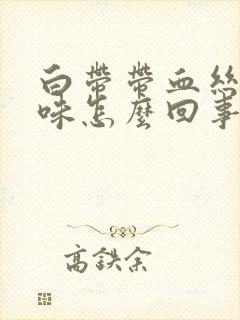 白帶帶血絲
味怎麼回事
高鉄余